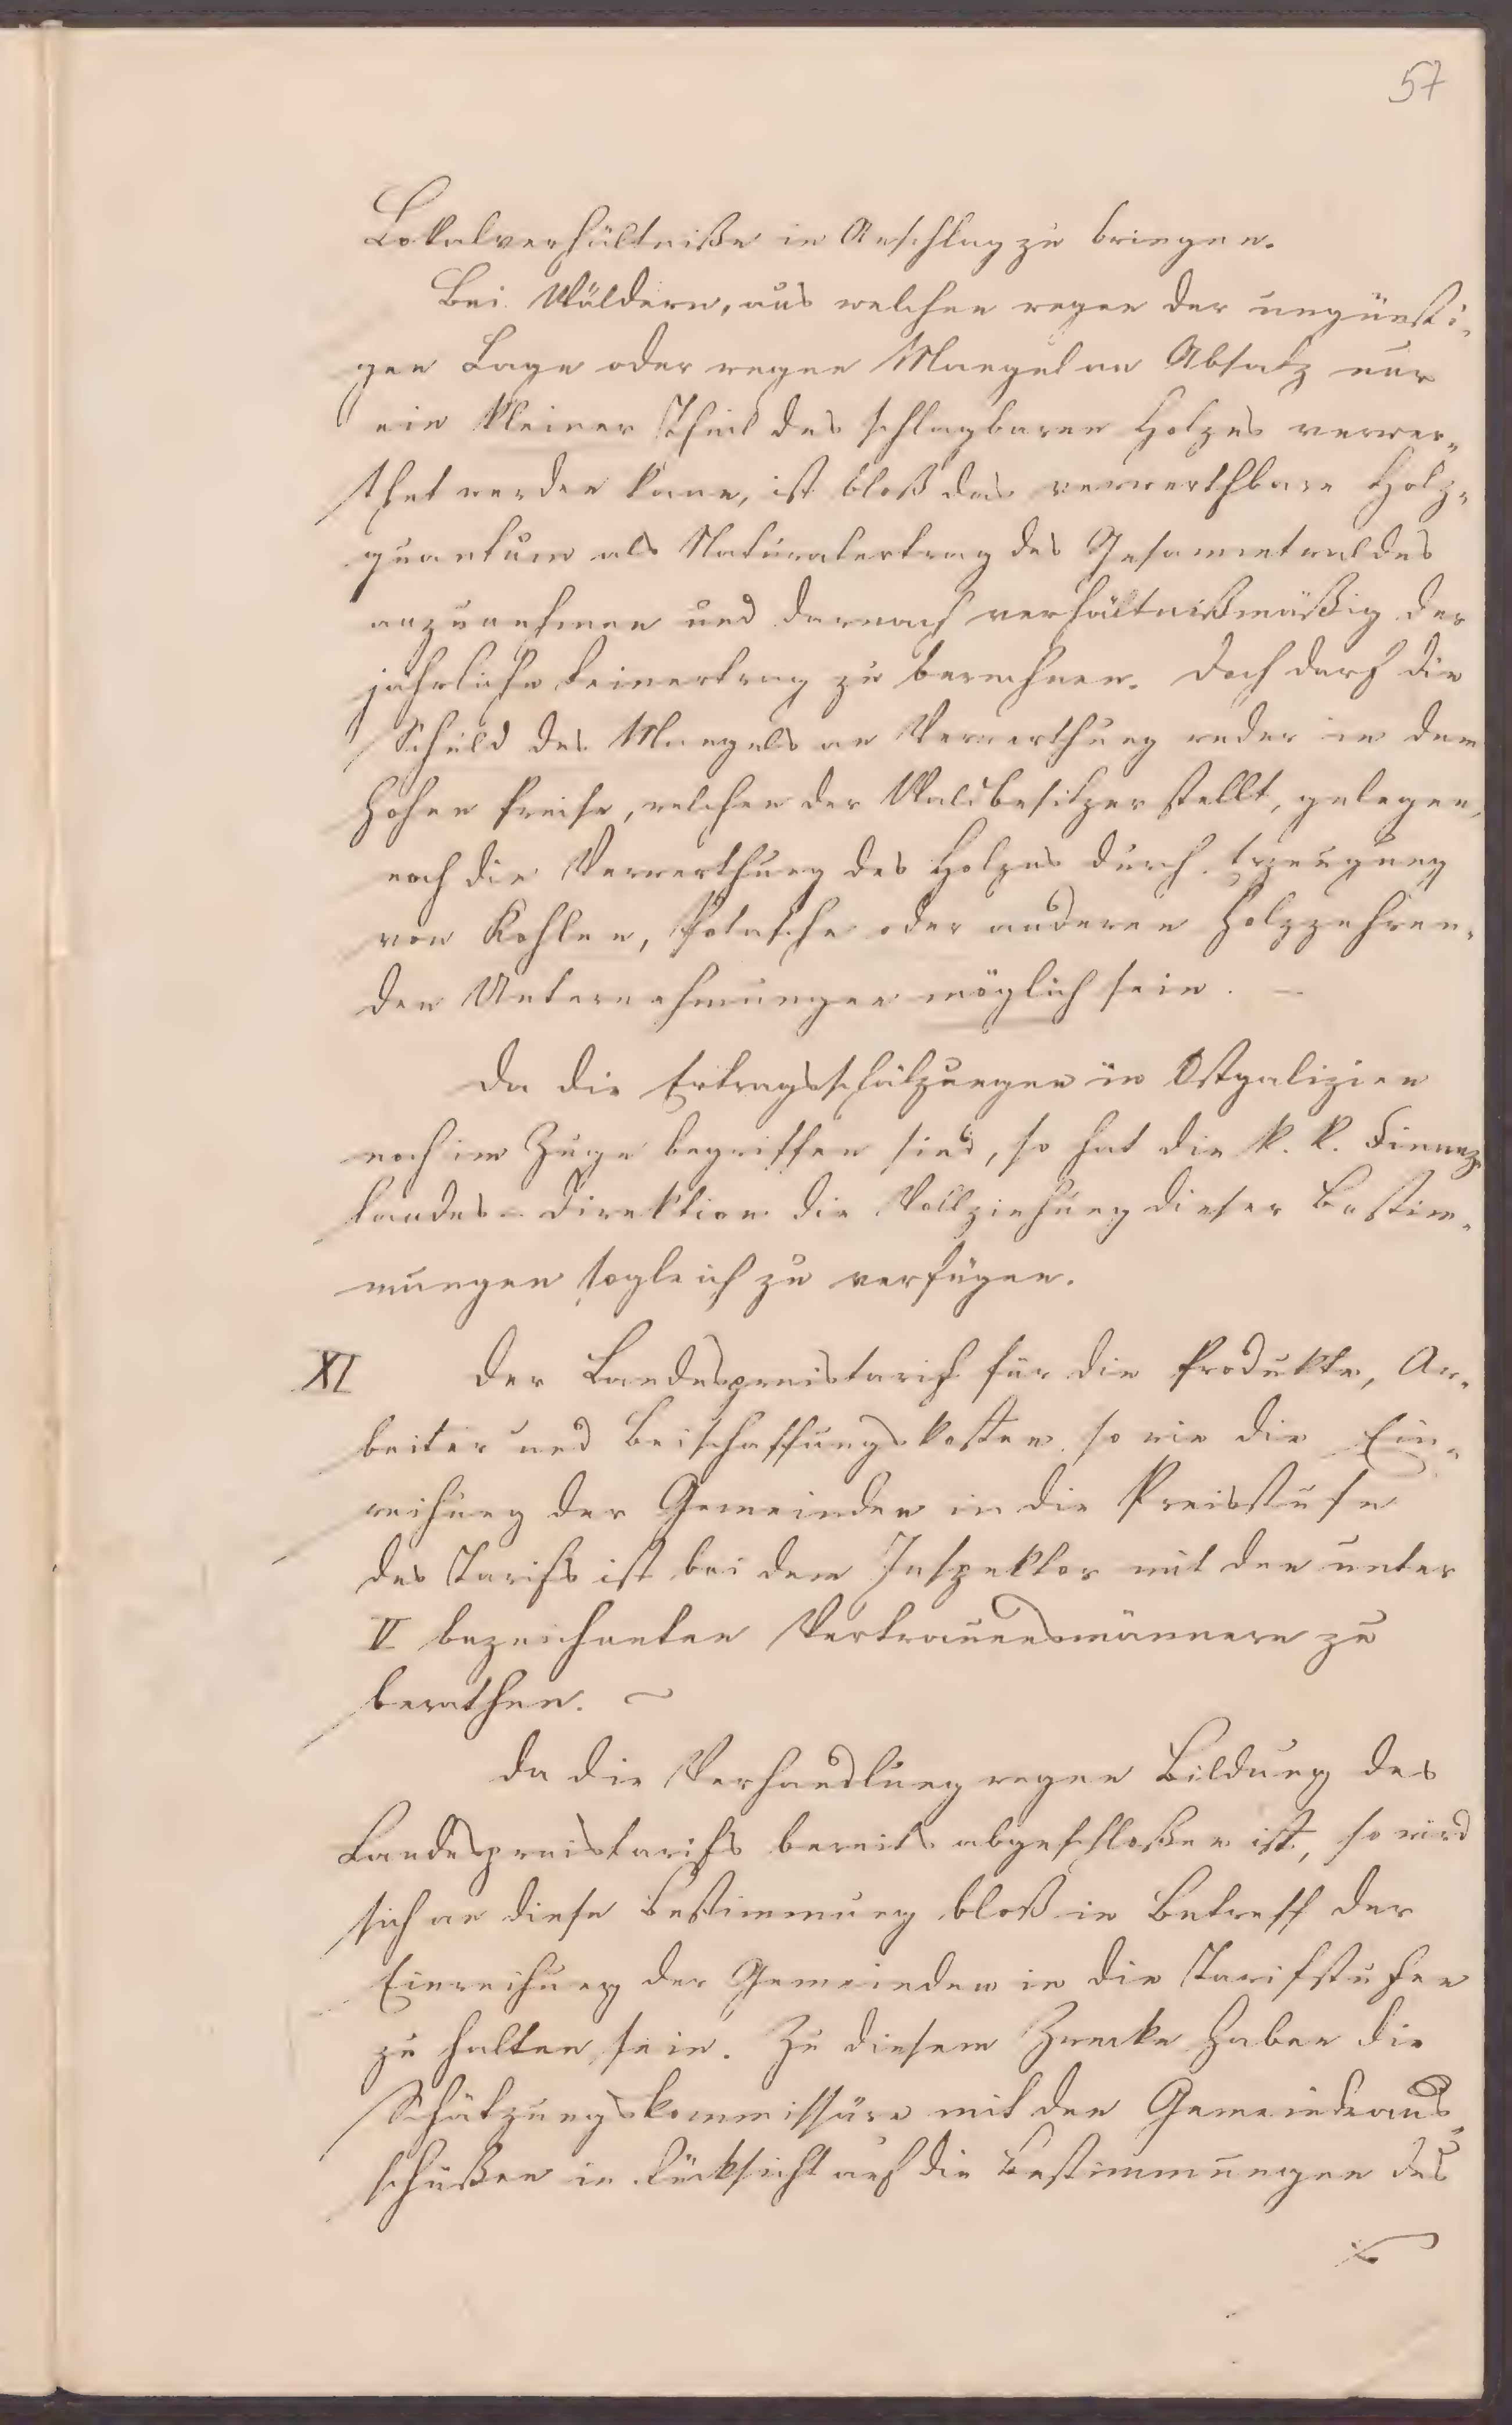 57
Lokalverhältniße in Anschlag zu bringen.
Bei Wäldern, aus welchen wegen der ungünsti-
gen Lage oder wegen Mangel an Absatz nur
ein kleiner Theil des schlagbaren Holzes verwer-
thet werden kann, ist bloß das verwerthbare Holz-
quantum als Naturalertrag des Gesammtwaldes
anzunehmen und darnach verhältnißmäßig der
jährliche Reinertrag zu berechnen. Doch darf die
Schuld des Mangels an Verwerthung weder in dem
hohen Preise, welchen der Waldbesitzer stellt, gelegen,
noch die Verwerthung des Holzes durch Erzeugung
von Kohlen, Potasche oder anderen Holzzehren-
den Unternehmungen möglich sein. —
Da die Ertragsschätzungen in Ostgalizien
noch im Zuge begriffen sind, so hat die k. k. Finanz-
landes-Direktion die Vollziehung dieser Bestim-
mungen sogleich zu verfügen.
XI Der Landespreistarif für die Produkte, Ar-
beiter und Beischaffungskosten, so wie die Ein-
reihung der Gemeinden in die Preisstufe
des Tarifs ist bei dem Inspektor mit den unter
V bezeichneten Vertrauensmännern zu
berathen. ~
Da die Verhandlung wegen Bildung des
Landespreistarifs bereits abgeschloßen ist, so wird
sich an diese Bestimmung bloß in Betreff der
Einreihung der Gemeinden in die Tarifstufen
zu halten sein. Zu diesem Zwecke haben die
Schätzungskommissäre mit den Gemeindeaus-
schüßen in Rücksicht auf die Bestimmungen des